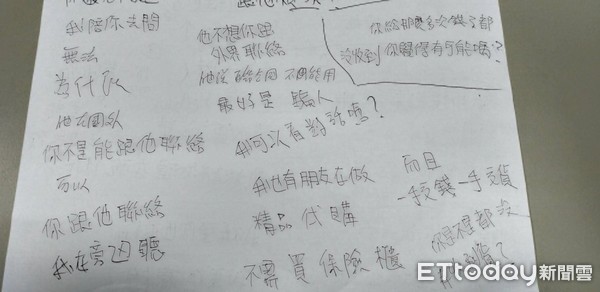 我陪你去問
無法
為什麼
他在國外
你不是能跟他聯絡
可以
你跟他聯絡
我在旁邊聽
他不想你跟
外界聯絡
不同能用
最好是騙人
我可以看對話嗎?
我也有朋友在做
精品代購
不需買保險櫃
你給那麼多次錢了都
沒收到你覺得有可能嗎?
而且
一手交錢一手交貨
你是不是都沒
ETtoday新聞雲